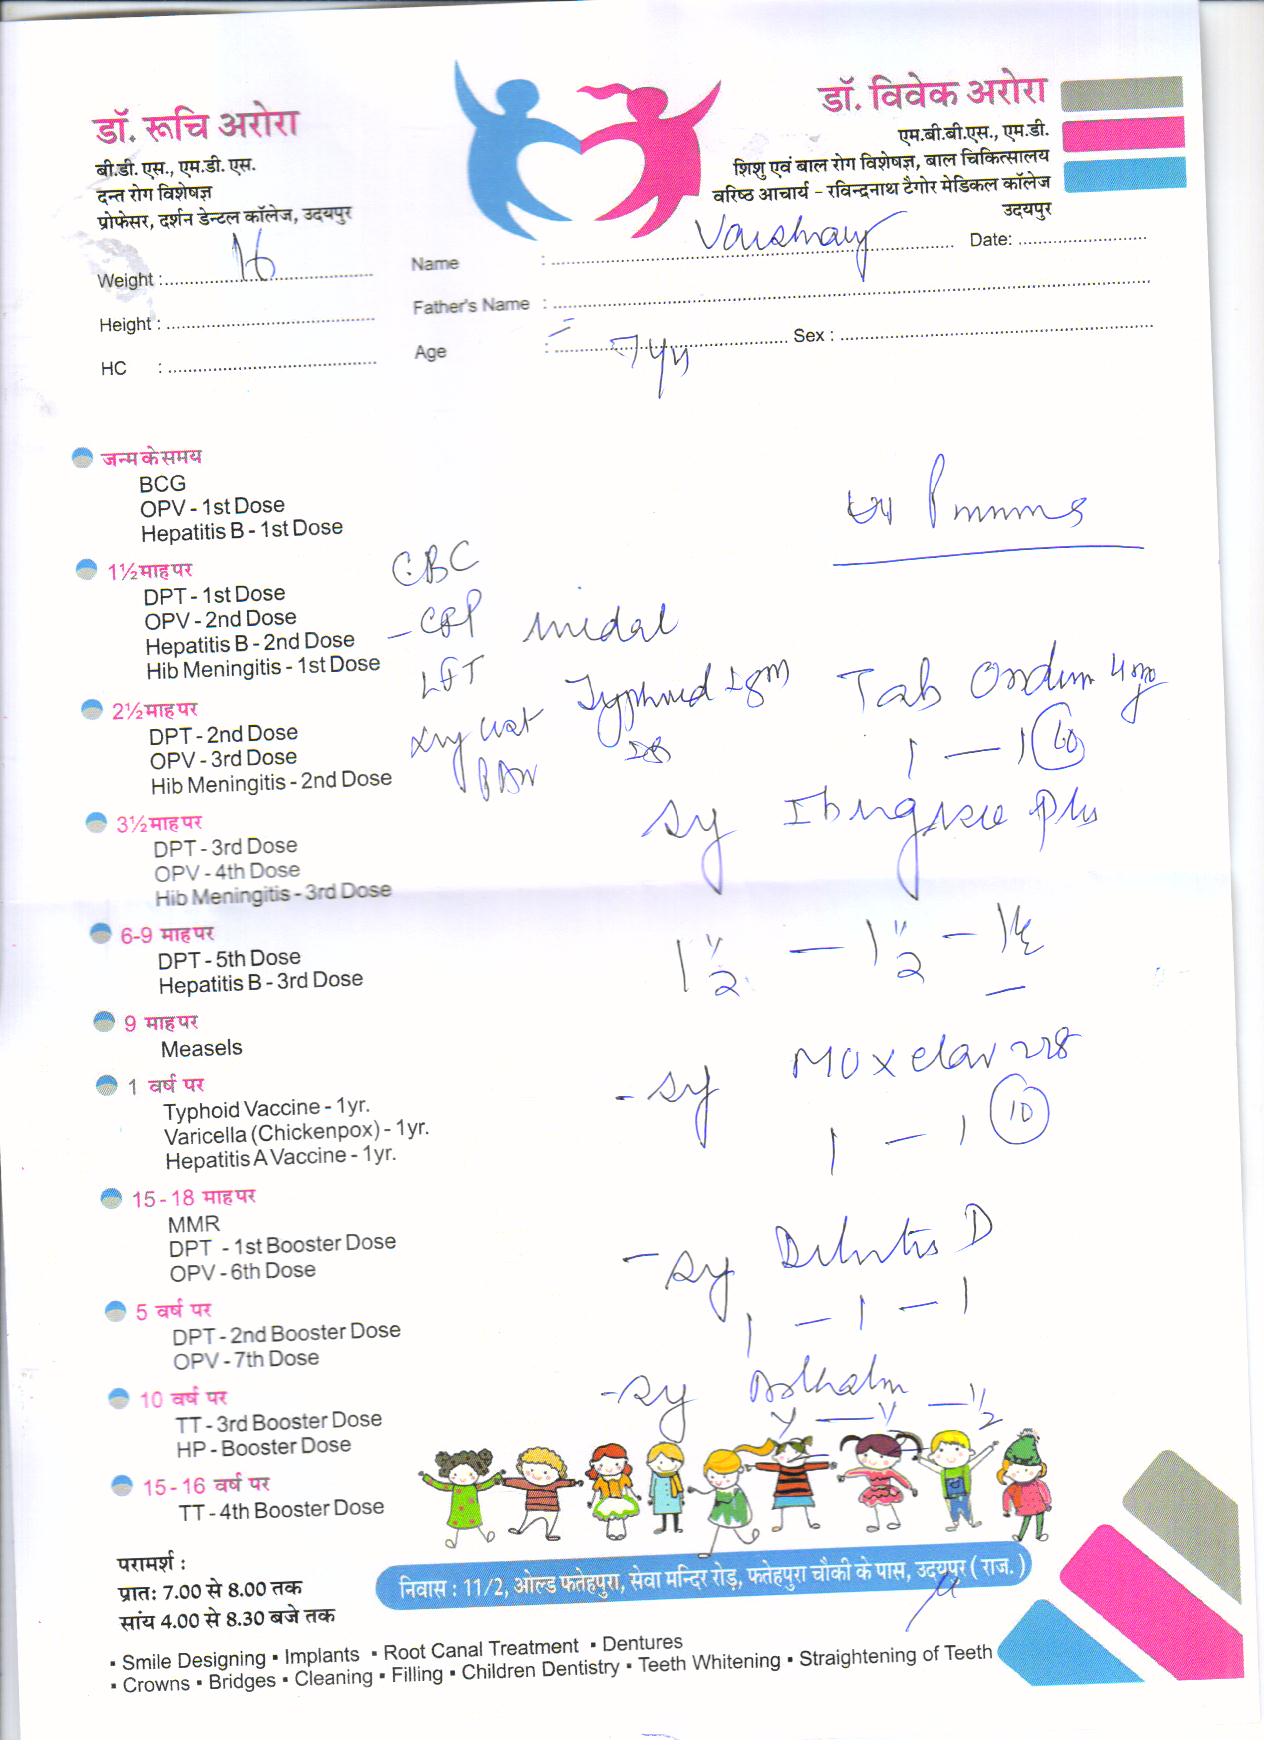 डॉ. रूचि अरोरा
बी.डी. एस., एम.डी. एस.
दन्त रोग विशेषज्ञ
प्रोफेसर, दर्शन डेन्टल कॉलेज, उदयपुर
डॉ. विवेक अरोरा
एम.बी.बी.एस., एम.डी.
शिशु एवं बाल रोग विशेषज्ञ, बाल चिकित्सालय
वरिष्ठ आचार्य - रविन्द्रनाथ टैगोर मेडिकल कॉलेज
उदयपुर
Weight : 16
Height :
HC :
Name : Date:
Father's Name :
Age : 7 yrs Sex :
जन्म के समय
BCG
OPV - 1st Dose
Hepatitis B - 1st Dose
1½ माह पर
DPT - 1st Dose
OPV - 2nd Dose
Hepatitis B - 2nd Dose
Hib Meningitis - 1st Dose
2½ माह पर
DPT - 2nd Dose
OPV - 3rd Dose
Hib Meningitis - 2nd Dose
3½ माह पर
DPT - 3rd Dose
OPV - 4th Dose
Hib Meningitis - 3rd Dose
6-9 माह पर
DPT - 5th Dose
Hepatitis B - 3rd Dose
9 माह पर
Measels
1 वर्ष पर
Typhoid Vaccine - 1yr.
Varicella (Chickenpox) - 1yr.
Hepatitis A Vaccine - 1yr.
15-18 माह पर
MMR
DPT - 1st Booster Dose
OPV - 6th Dose
5 वर्ष पर
DPT - 2nd Booster Dose
OPV - 7th Dose
10 वर्ष पर
TT - 3rd Booster Dose
HP - Booster Dose
15-16 वर्ष पर
TT - 4th Booster Dose
CBC
- CRP widal
LFT
Typhoid IgM
Xray chest
Tab Ondem 4mg
1 — 1 (60)
Sy Ibugesic Plus
1½ — 1½ — 1½
- Sy Moxclav 228
1 — 1 (10)
- Sy D
1 — 1 — 1
- Sy
परामर्श :
प्रातः 7.00 से 8.00 तक
सांय 4.00 से 8.30 बजे तक
निवास : 11/2, ओल्ड फतेहपुरा, सेवा मन्दिर रोड़, फतेहपुरा चौकी के पास, उदयपुर ( राज. )
▪ Smile Designing ▪ Implants ▪ Root Canal Treatment ▪ Dentures
▪ Crowns ▪ Bridges ▪ Cleaning ▪ Filling ▪ Children Dentistry ▪ Teeth Whitening ▪ Straightening of Teeth